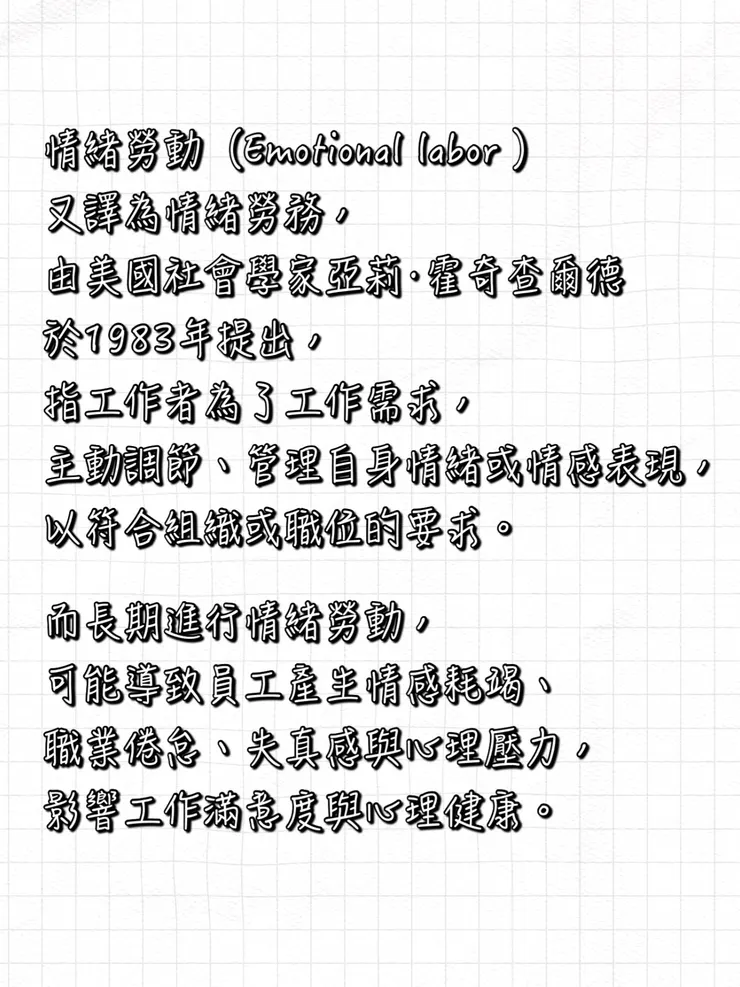 情緒勞動（Emotional labor）
又譯為情緒勞務，
由美國社會學家亞莉·霍奇查爾德
於1983年提出，
指工作者為了工作需求，
主動調節、管理自身情緒或情感表現，
以符合組織或職位的要求。
而長期進行情緒勞動，
可能導致員工產生情感耗竭、
職業倦怠、失真感與心理壓力，
影響工作滿意度與心理健康。